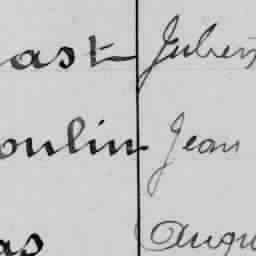 ast Julien
oulin Jean
as Augu